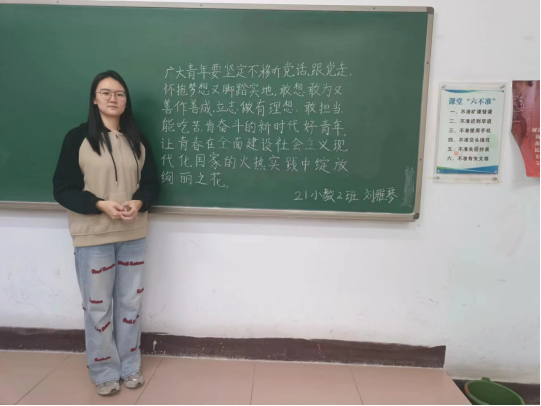 广大青年要坚定不移听党话、跟党走,
怀抱梦想又脚踏实地,敢想敢为又
善作善成,立志做有理想、敢担当
能吃苦肯奋斗的新时代好青年,
让青春在全面建设社会主义现
代化国家的火热实践中绽放
绚丽之花。
21小教2班 刘雅琴
课堂“六不准”
一、不准旷课替课
二、不准迟到早退
三、不准使用手机
四、不准交头接耳
五、不准失控抄袭
六、不准有失文雅